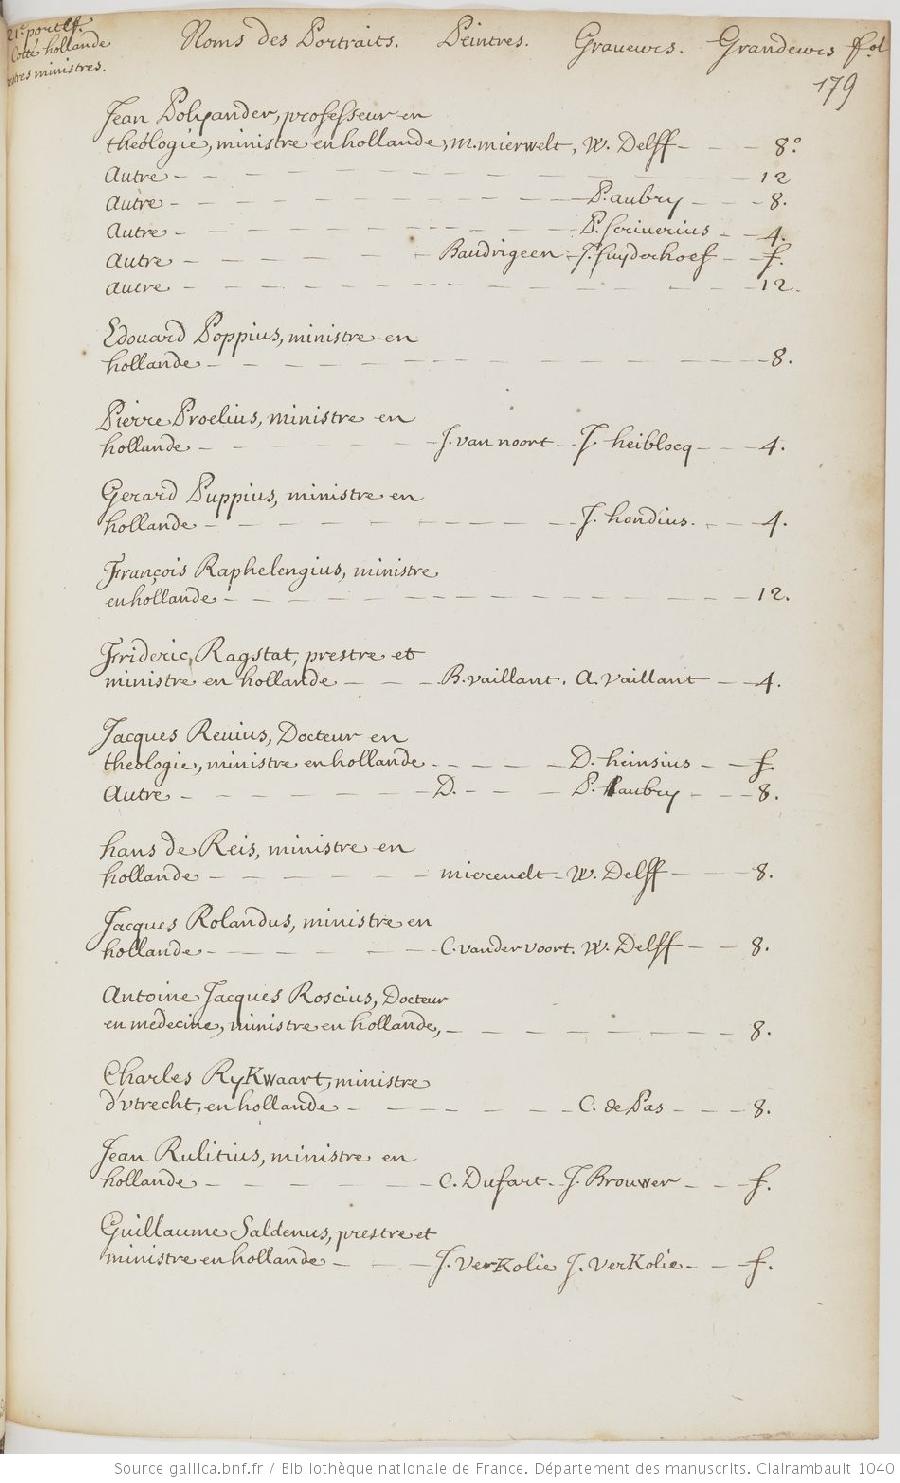 21e. portef.
Cotté hollande
Noms des Portraits. Peintres. Graveurs. Grandeurs fol
ministres.
179
Jean Polyander, professeur en
theologie, ministre en hollande, m. mierwelt, W. Delff - - - 8o
Autre - - - 12
Autre - - - P. aubry - - 8.
Autre - - - P. scriverius - - 4.
Autre - - - Baudrigeen - J. suyderhoef - - f.
autre - - - 12.
Edouard Poppius, ministre en
hollande - - - 8.
Pierre Proelius, ministre en
hollande - - - J. van noort - J. heiblocq - - - 4.
Gerard Puppius, ministre en
hollande - - - J. hondius. - - - 4.
François Raphelengius, ministre
en hollande - - - 12.
Frideric, Ragstat, prestre et
ministre en hollande - - - B. vaillant. A. vaillant - - 4.
Jacques Revius, Docteur en
theologie, ministre en hollande - - - D. heinsius - - f.
Autre - - - D. - - - P. aubry - - - 8.
hans de Reis, ministre en
hollande - - - mierevelt - W. Delff - - - 8.
Jacques Rolandus, ministre en
hollande - - - C. vander voort. W. Delff - - 8.
Antoine Jacques Roscius, Docteur
en médecine, ministre en hollande, - - - 8.
Charles RyKwaart, ministre
d'vtrecht, en hollande - - - C. de Pas - - - 8.
Jean Rulitius, ministre en
hollande - - - C. Dufart - J. Brouwer - - - f.
Guillaume Saldenus, prestre et
ministre en hollande - - - J. verKolie J. verKolie - - f.
Source gallica.bnf.fr / Bibliothèque nationale de France. Département des manuscrits. Clairambault 1040